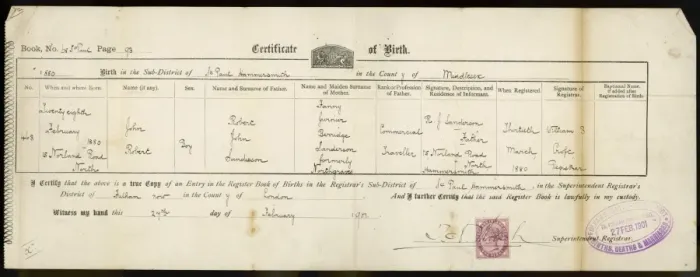 Book, No. St Paul Page 93
Certificate of Birth.
1880 Birth in the Sub-District of St Paul Hammersmith in the County of Middlesex
No. When and where Born. Name (if any). Sex. Name and Surname of Father. Name and Maiden Surname of Mother. Rank or Profession of Father. Signature, Description, and Residence of Informant. When Registered. Signature of Registrar. Baptismal Name, if added after Registration of Birth.
Twenty eighth
February
1880
Norland Road
North
John
Robert
Boy
Robert
John
Sanderson
Fanny
Sanderson
formerly
Commercial
Traveller
R J Sanderson
Father
Norland Road
North
Hammersmith
Thirtieth
March
1880
William
Registrar
I Certify that the above is a true Copy of an Entry in the Register Book of Births in the Registrar's Sub-District of St Paul Hammersmith, in the Superintendent Registrar's
District of Fulham now in the County of London And I further Certify that the said Register Book is lawfully in my custody.
Witness my hand this 27th day of February 1901
Superintendent Registrar.
27 FEB. 1901
BIRTHS, DEATHS & MARRIAGES